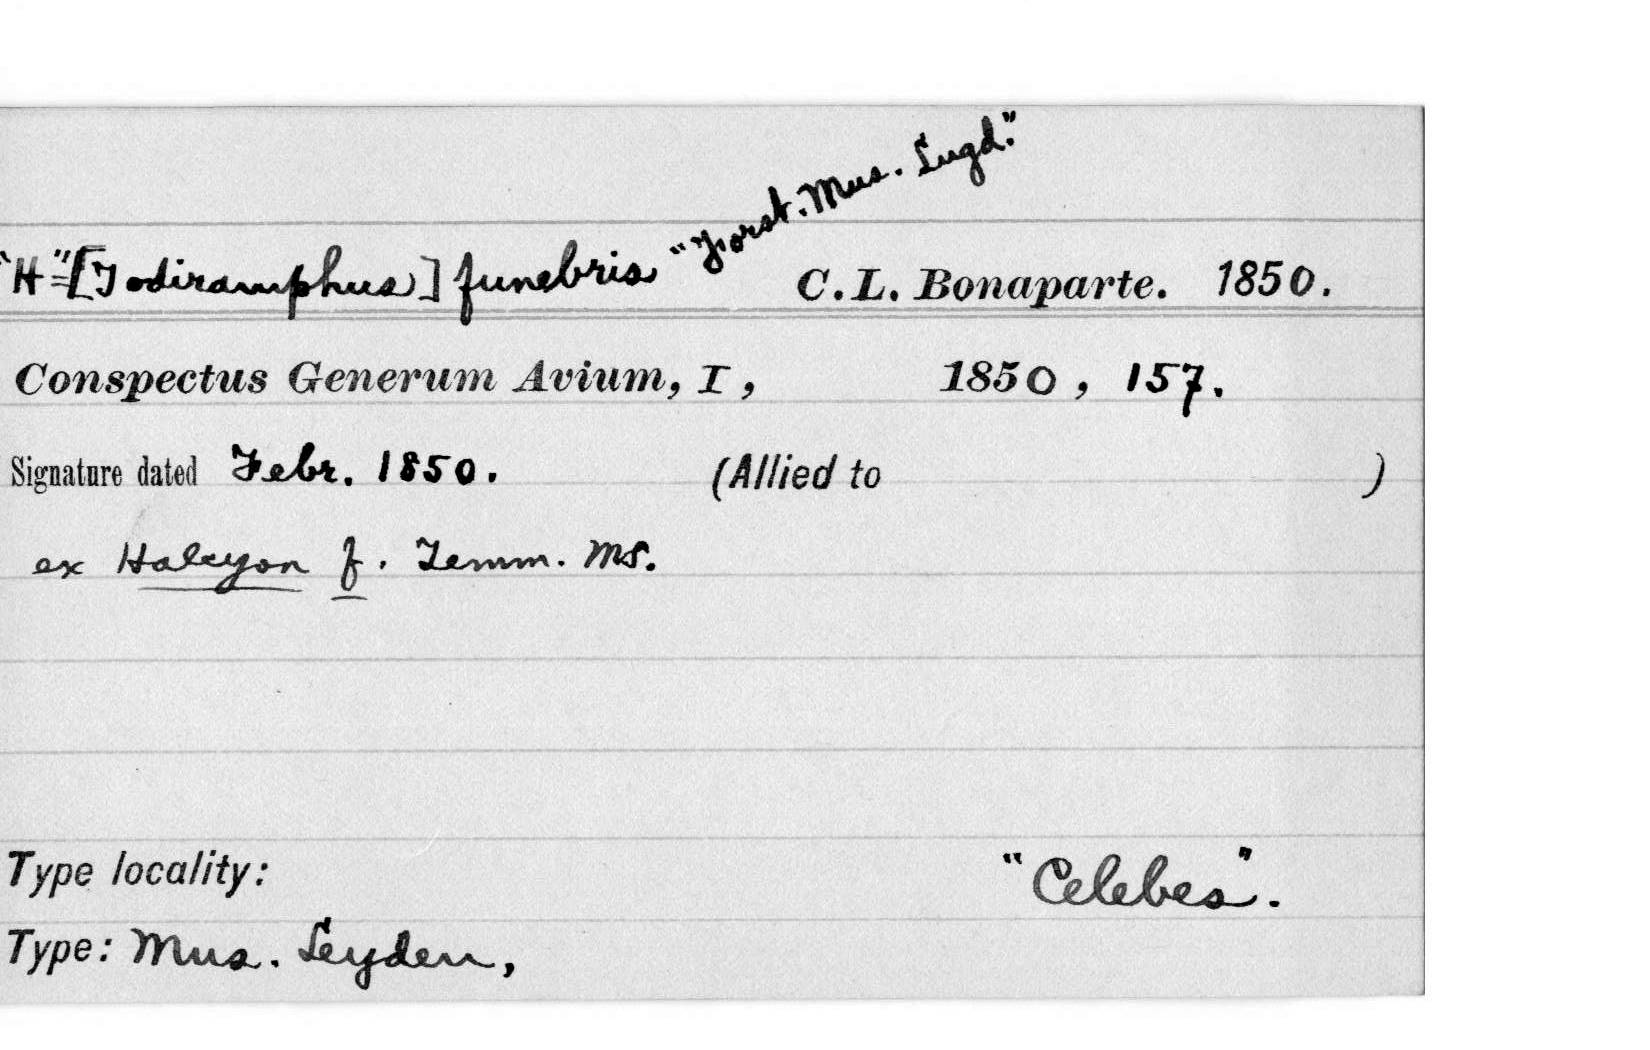 "Forst. Mus. Lugd."
"H"=[Todiramphus] funebris C.L. Bonaparte. 1850.
Conspectus Generum Avium, I, 1850, 157.
Signature dated Febr. 1850. (Allied to )
ex Halcyon f. Temm. MS.
Type locality: "Celebes".
Type: Mus. Leyden,